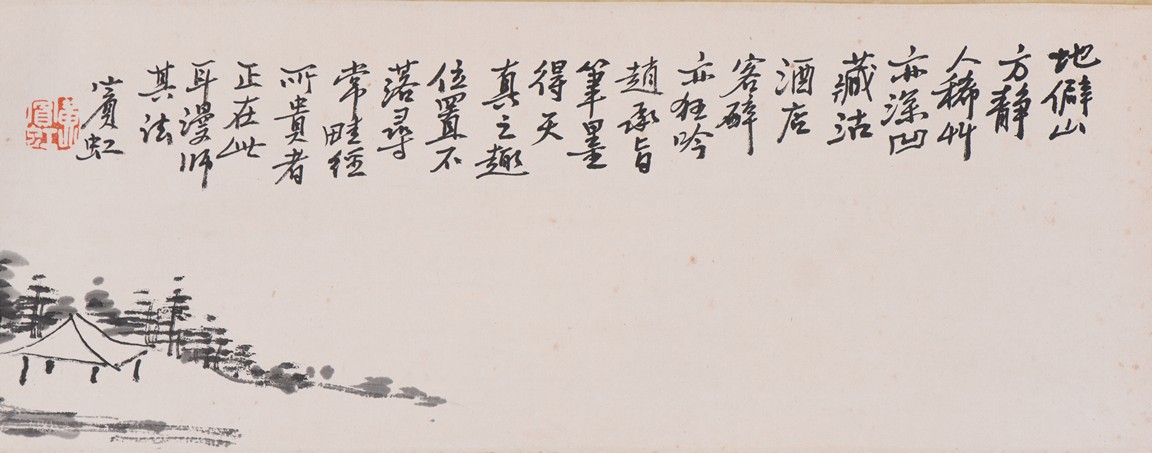 地僻山
方靜
人稀艸
亦深凹
藏沽
酒店
客醉
亦狂吟
趙承旨
筆墨
得天
真之趣
位置不
落尋
常畦徑
所貴者
正在此
耳漫師
其法
賓虹
黄賓虹